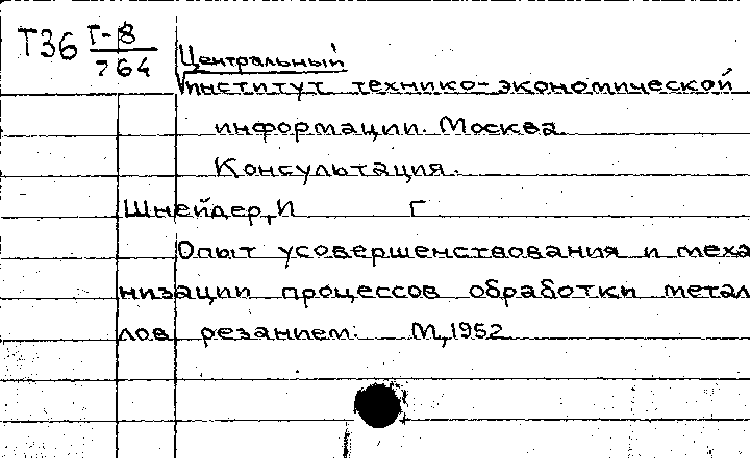 Т36 Т-8
764
Центральный
институт технико-экономической
информации. Москва.
Консультация.
Шнейдер, И Г
Опыт усовершенствования и меха
низации процессов обработки метал
лов резанием. М, 1952